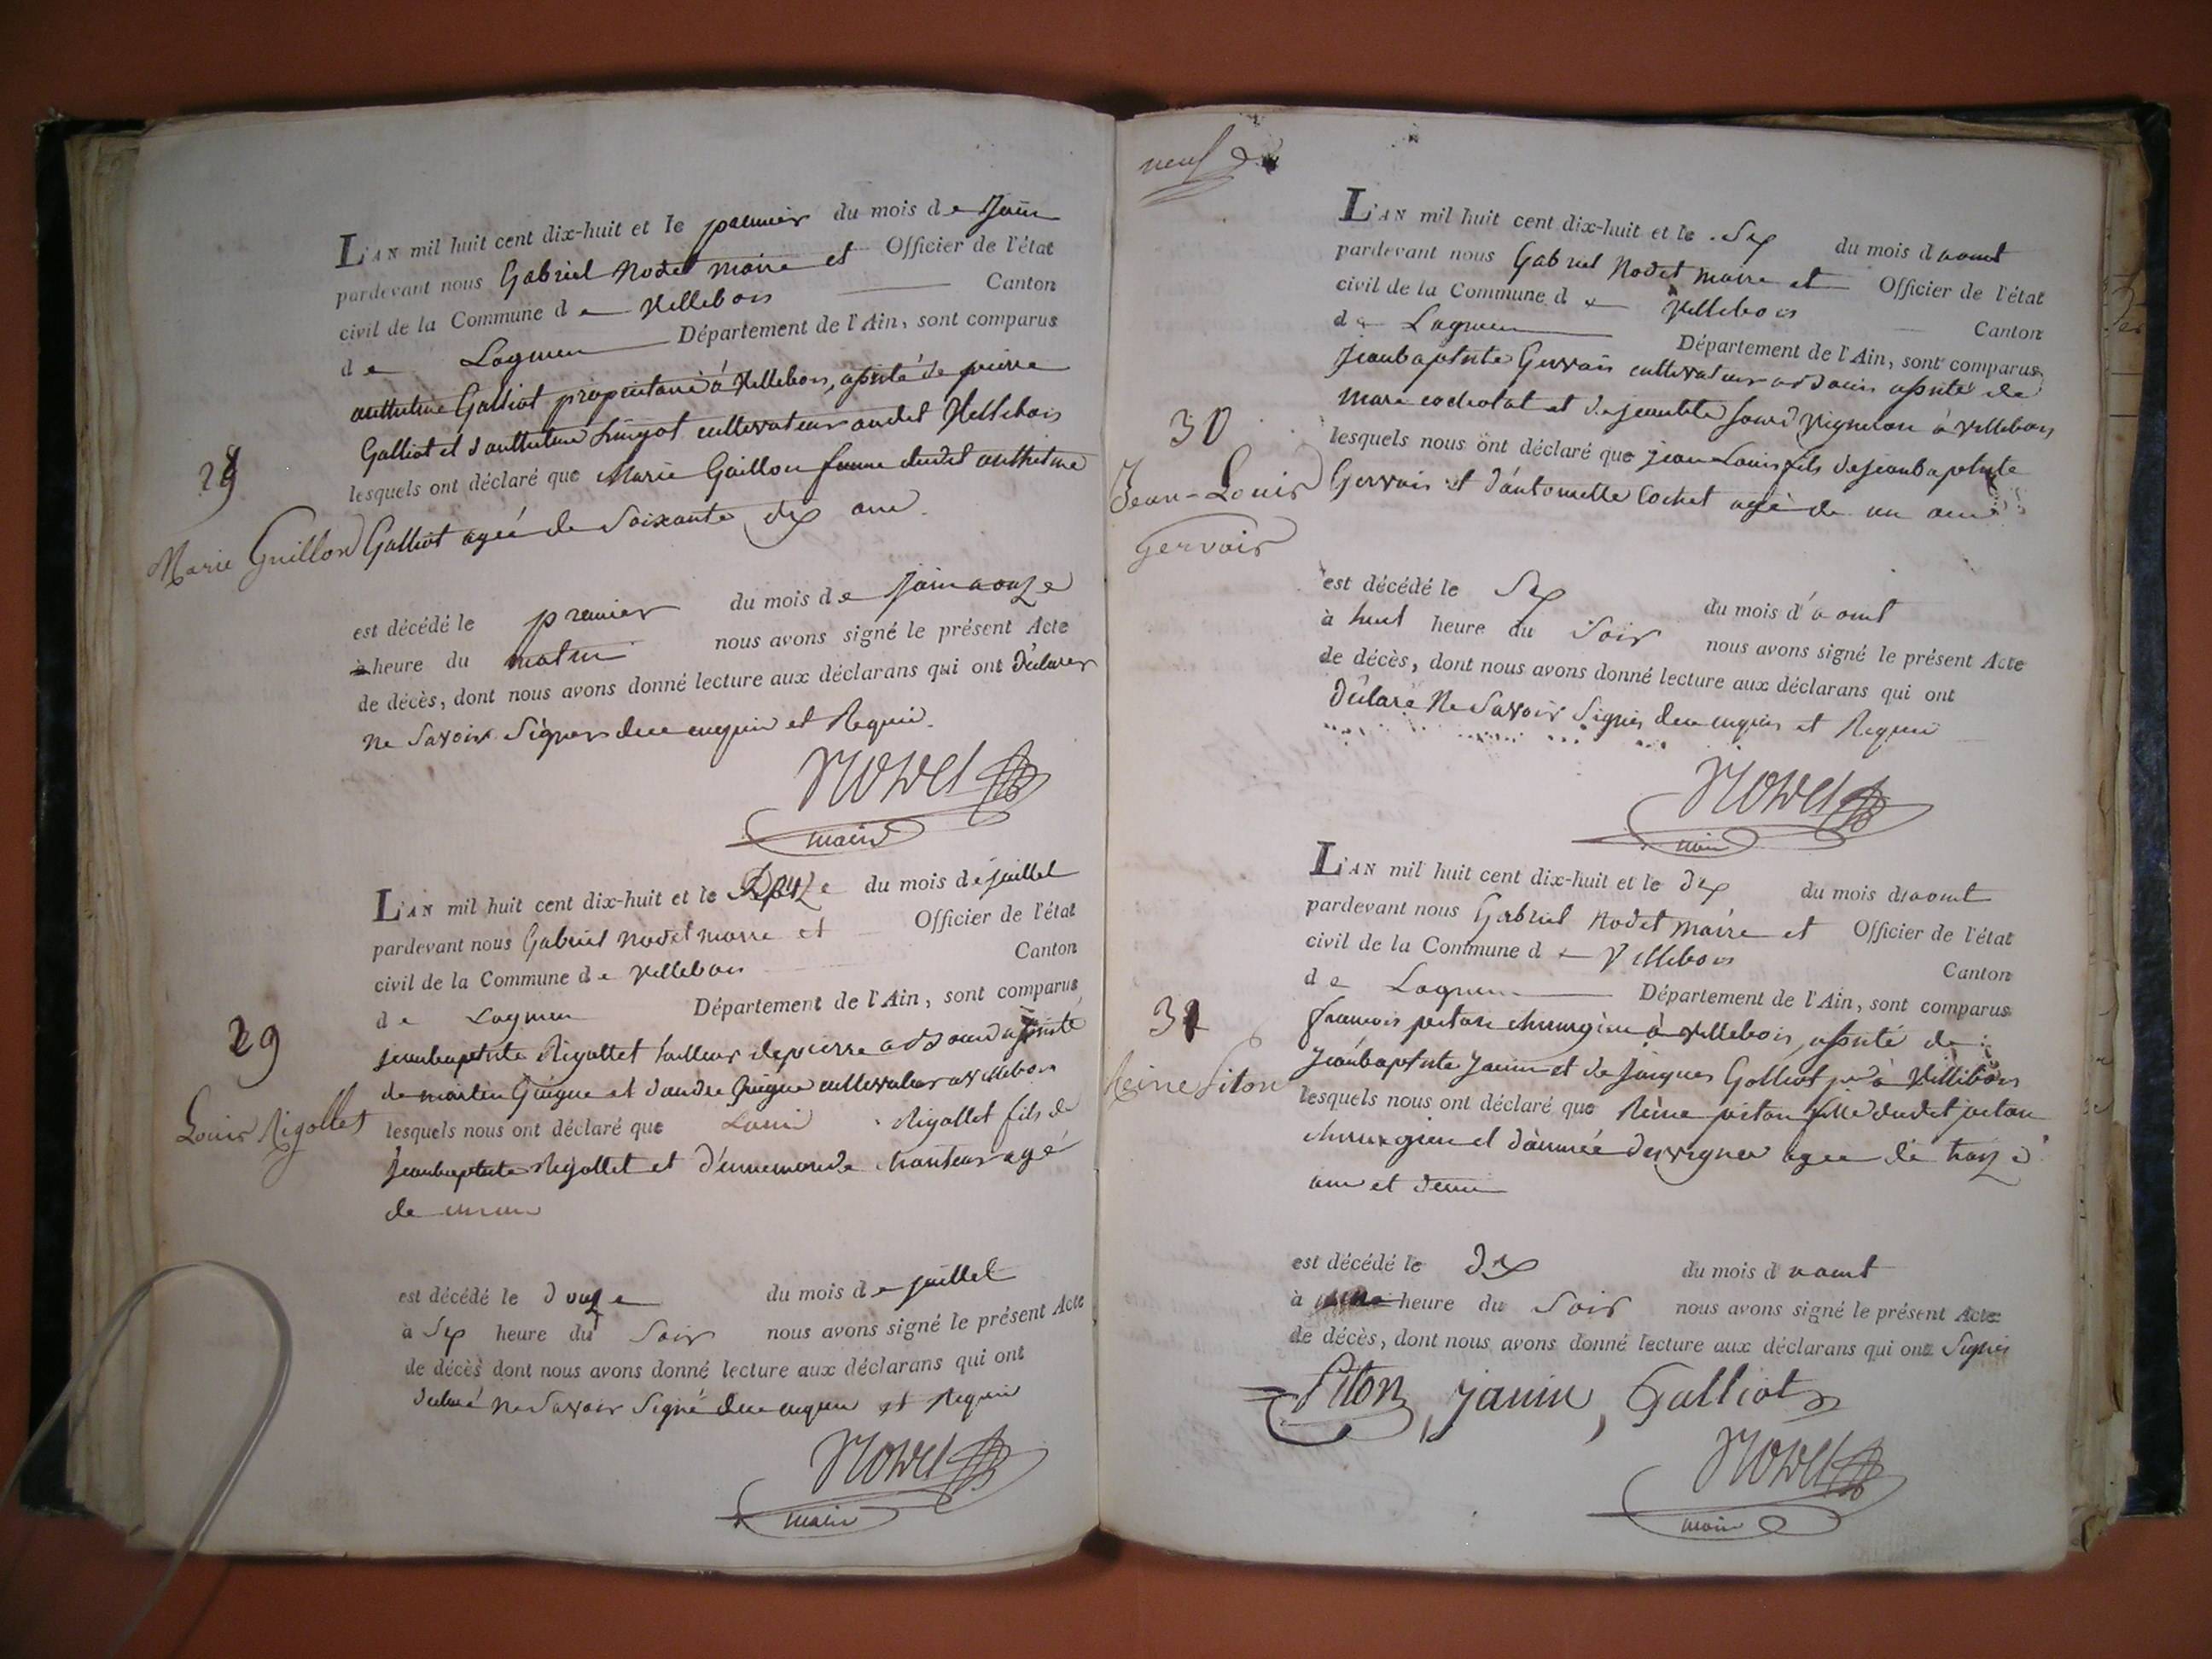 L'AN mil huit cent dix-huit et le premier du mois de Juin
pardevant nous Gabriel Nodet maire et Officier de l'état
civil de la Commune de Villebois Canton
de Lagnieu Département de l'Ain, sont comparus
anthelme Galliot propriétaire à Villebois, assisté de pierre
Galliot et d'anthelme cultivateur audit Villebois
28
lesquels ont déclaré que Marie Guillon femme dudit anthelme
Marie Guillon
Galliot agée de Soixante dix ans
est décédé le premier du mois de Juin a onze
heure du matin nous avons signé le présent Acte
de décès, dont nous avons donné lecture aux déclarans qui ont déclarer
ne Savoir Signer de ce enquis et Requis.
Nodet
maire
L'AN mil huit cent dix-huit et le Douze du mois de juillet
pardevant nous Gabriel Nodet maire et Officier de l'état
civil de la Commune de Villebois Canton
de Lagnieu Département de l'Ain, sont comparus
29
jeanbaptiste Rigollet tailleur de pierre assisté
de martin Guigue et d'andré Guigue cultivateur a Villebois
Louis Rigollet
lesquels nous ont déclaré que Louis Rigollet fils de
Jeanbaptiste Rigollet et d'ennemonde agé
de un an
est décédé le douze du mois de juillet
à Six heure du Soir nous avons signé le présent Acte
de décès dont nous avons donné lecture aux déclarans qui ont
déclaré ne Savoir Signé de ce enquis et Requis
Nodet
maire
neuf
L'AN mil huit cent dix-huit et le Six du mois d'aout
pardevant nous Gabriel Nodet maire et Officier de l'état
civil de la Commune de Villebois Canton
de Lagnieu Département de l'Ain, sont comparus
Jeanbaptiste Gervais cultivateur assisté de
à Villebois
30
lesquels nous ont déclaré que jean Louis fils de jeanbaptiste
Jean-Louis
Gervais
Gervais et d'antoinette Cochet agé de un ans
est décédé le Six du mois d'aout
à huit heure du Soir nous avons signé le présent Acte
de décès, dont nous avons donné lecture aux déclarans qui ont
déclaré Ne Savoir Signer de ce enquis et Requis
Nodet
maire
L'AN mil huit cent dix-huit et le dix du mois d'aout
pardevant nous Gabriel Nodet maire et Officier de l'état
civil de la Commune de Villebois Canton
de Lagnieu Département de l'Ain, sont comparus
31
francois piton chirurgien à Villebois, assisté de
Jeanbaptiste Janin et de jacques Galliot à Villebois
Reine Piton
lesquels nous ont déclaré que Reine piton fille dudit piton
chirurgien et agée de treize
ans et demi
est décédé le dix du mois d'aout
à heure du Soir nous avons signé le présent Acte
de décès, dont nous avons donné lecture aux déclarans qui ont Signés
Piton, Janin, Galliot
Nodet
maire